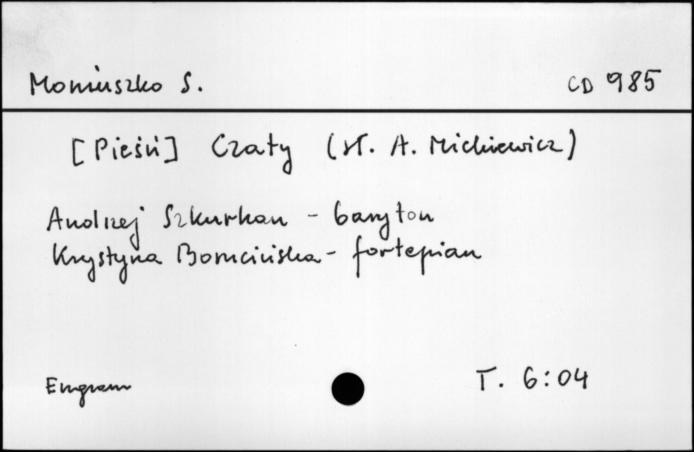 Moniuszko S.
CD 985
[Pieśń] Czaty (sł. A. Mickiewicz)
Andrzej Szkurhan - baryton
Krystyna Borucińska - fortepian
Engram
T. 6:04